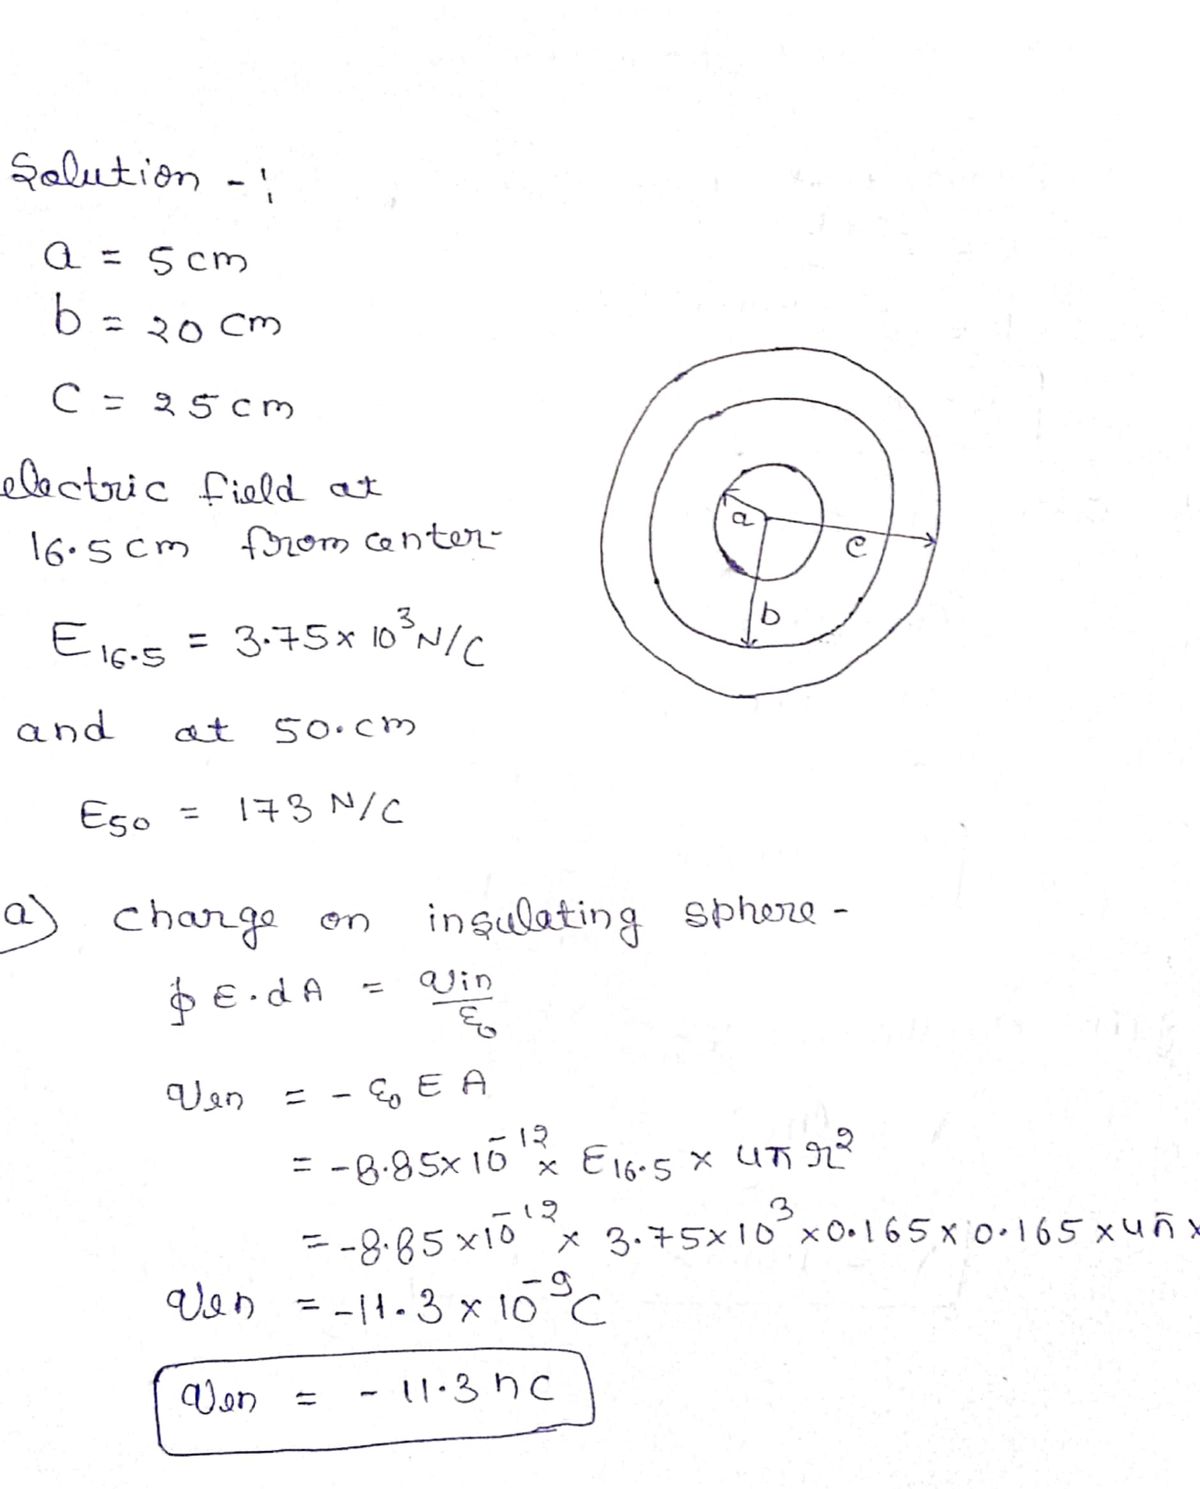 Solution -:
a = 5 cm
b = 20 cm
C = 25 cm
electric field at
16.5 cm from center-
E16.5 = 3.75 x 10^3 N/C
and at 50.cm
E50 = 173 N/C
a
c
b
a) charge on insulating sphere -
∮ E.dA = qin/ε0
qen = - ε0 E A
= -8.85 x 10^-12 x E16.5 x 4π r^2
= -8.85 x 10^-12 x 3.75 x 10^3 x 0.165 x 0.165 x 4π x
qen = -11.3 x 10^-9 C
qen = - 11.3 nC